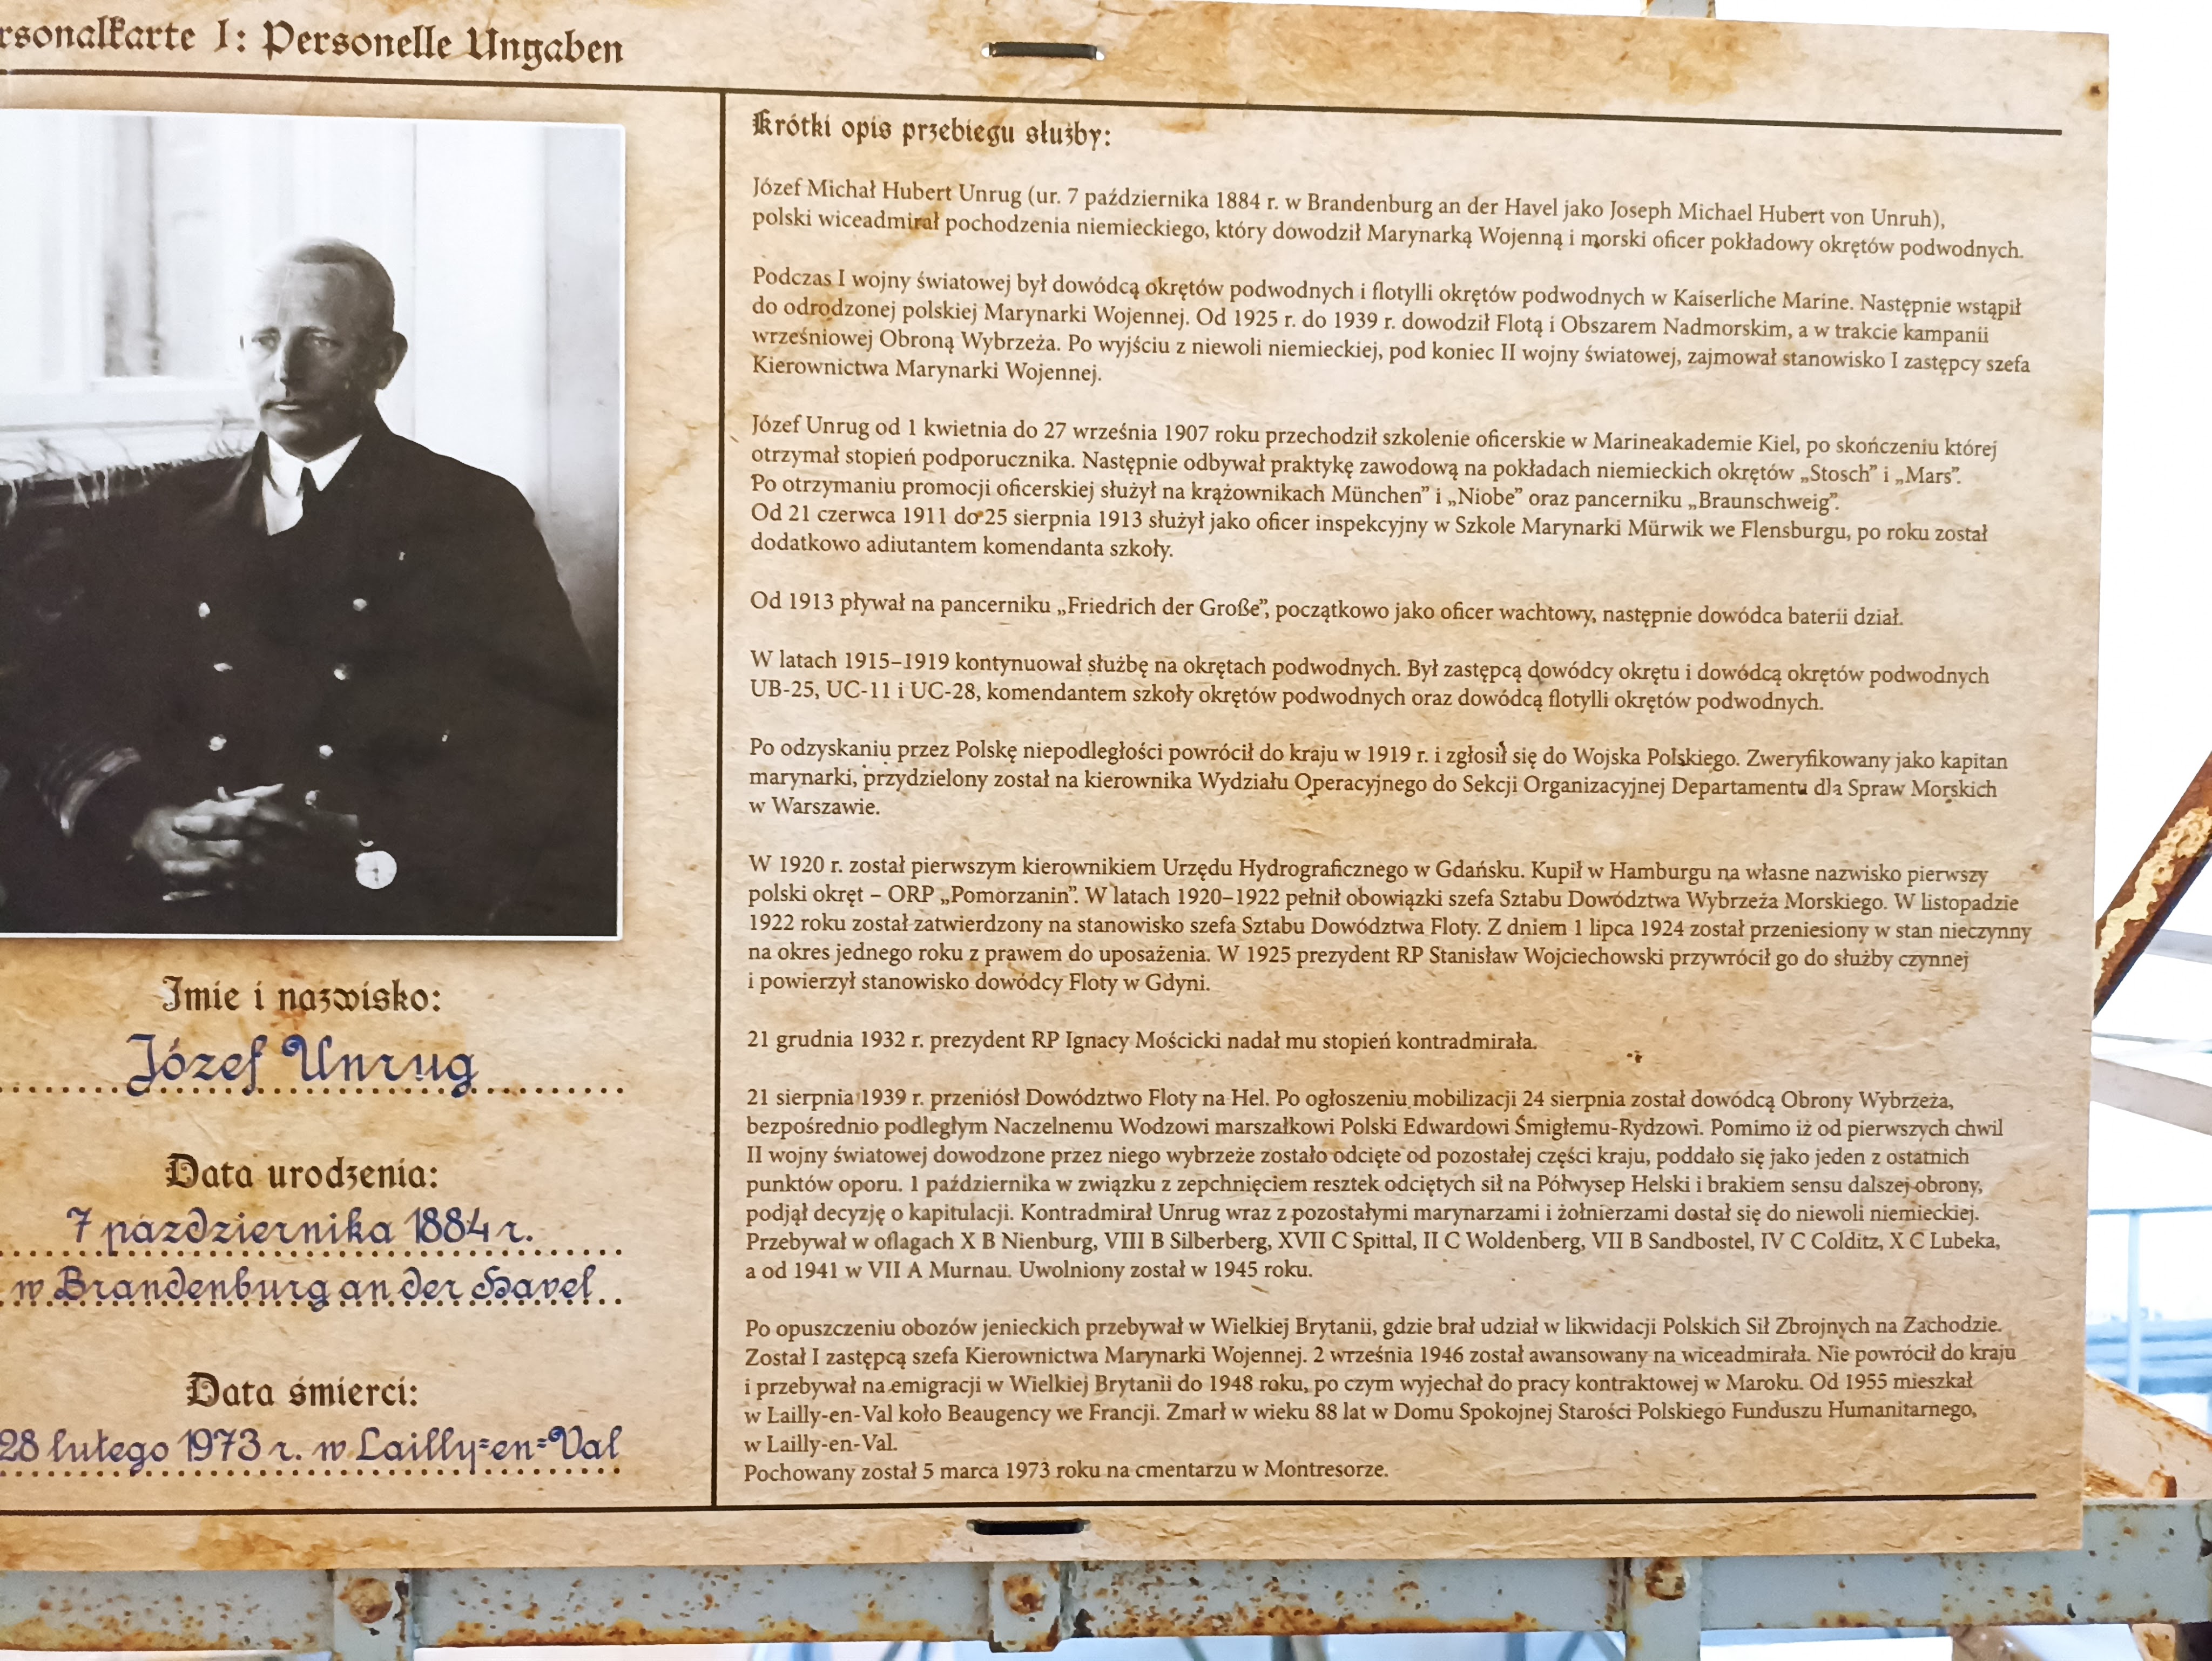 rsonalkarte I: Personelle Ungaben
Krótki opis przebiegu służby:
Józef Michał Hubert Unrug (ur. 7 października 1884 r. w Brandenburg an der Havel jako Joseph Michael Hubert von Unruh),
polski wiceadmirał pochodzenia niemieckiego, który dowodził Marynarką Wojenną i morski oficer pokładowy okrętów podwodnych.
Podczas I wojny światowej był dowódcą okrętów podwodnych i flotylli okrętów podwodnych w Kaiserliche Marine. Następnie wstąpił
do odrodzonej polskiej Marynarki Wojennej. Od 1925 r. do 1939 r. dowodził Flotą i Obszarem Nadmorskim, a w trakcie kampanii
wrześniowej Obroną Wybrzeża. Po wyjściu z niewoli niemieckiej, pod koniec II wojny światowej, zajmował stanowisko I zastępcy szefa
Kierownictwa Marynarki Wojennej.
Józef Unrug od 1 kwietnia do 27 września 1907 roku przechodził szkolenie oficerskie w Marineakademie Kiel, po skończeniu której
otrzymał stopień podporucznika. Następnie odbywał praktykę zawodową na pokładach niemieckich okrętów „Stosch” i „Mars”.
Po otrzymaniu promocji oficerskiej służył na krążownikach München” i „Niobe” oraz pancerniku „Braunschweig”.
Od 21 czerwca 1911 do 25 sierpnia 1913 służył jako oficer inspekcyjny w Szkole Marynarki Mürwik we Flensburgu, po roku został
dodatkowo adiutantem komendanta szkoły.
Od 1913 pływał na pancerniku „Friedrich der Große”, początkowo jako oficer wachtowy, następnie dowódca baterii dział.
W latach 1915–1919 kontynuował służbę na okrętach podwodnych. Był zastępcą dowódcy okrętu i dowódcą okrętów podwodnych
UB-25, UC-11 i UC-28, komendantem szkoły okrętów podwodnych oraz dowódcą flotylli okrętów podwodnych.
Po odzyskaniu przez Polskę niepodległości powrócił do kraju w 1919 r. i zgłosił się do Wojska Polskiego. Zweryfikowany jako kapitan
marynarki, przydzielony został na kierownika Wydziału Operacyjnego do Sekcji Organizacyjnej Departamentu dla Spraw Morskich
w Warszawie.
W 1920 r. został pierwszym kierownikiem Urzędu Hydrograficznego w Gdańsku. Kupił w Hamburgu na własne nazwisko pierwszy
polski okręt – ORP „Pomorzanin”. W latach 1920–1922 pełnił obowiązki szefa Sztabu Dowództwa Wybrzeża Morskiego. W listopadzie
1922 roku został zatwierdzony na stanowisko szefa Sztabu Dowództwa Floty. Z dniem 1 lipca 1924 został przeniesiony w stan nieczynny
na okres jednego roku z prawem do uposażenia. W 1925 prezydent RP Stanisław Wojciechowski przywrócił go do służby czynnej
i powierzył stanowisko dowódcy Floty w Gdyni.
21 grudnia 1932 r. prezydent RP Ignacy Mościcki nadał mu stopień kontradmirała.
21 sierpnia 1939 r. przeniósł Dowództwo Floty na Hel. Po ogłoszeniu mobilizacji 24 sierpnia został dowódcą Obrony Wybrzeża,
bezpośrednio podległym Naczelnemu Wodzowi marszałkowi Polski Edwardowi Śmigłemu-Rydzowi. Pomimo iż od pierwszych chwil
II wojny światowej dowodzone przez niego wybrzeże zostało odcięte od pozostałej części kraju, poddało się jako jeden z ostatnich
punktów oporu. 1 października w związku z zepchnięciem resztek odciętych sił na Półwysep Helski i brakiem sensu dalszej obrony,
podjął decyzję o kapitulacji. Kontradmirał Unrug wraz z pozostałymi marynarzami i żołnierzami dostał się do niewoli niemieckiej.
Przebywał w oflagach X B Nienburg, VIII B Silberberg, XVII C Spittal, II C Woldenberg, VII B Sandbostel, IV C Colditz, X C Lubeka,
a od 1941 w VII A Murnau. Uwolniony został w 1945 roku.
Po opuszczeniu obozów jenieckich przebywał w Wielkiej Brytanii, gdzie brał udział w likwidacji Polskich Sił Zbrojnych na Zachodzie.
Został I zastępcą szefa Kierownictwa Marynarki Wojennej. 2 września 1946 został awansowany na wiceadmirała. Nie powrócił do kraju
i przebywał na emigracji w Wielkiej Brytanii do 1948 roku, po czym wyjechał do pracy kontraktowej w Maroku. Od 1955 mieszkał
w Lailly-en-Val koło Beaugency we Francji. Zmarł w wieku 88 lat w Domu Spokojnej Starości Polskiego Funduszu Humanitarnego,
w Lailly-en-Val.
Pochowany został 5 marca 1973 roku na cmentarzu w Montresorze.
Imie i nazwisko:
Józef Unrug
Data urodzenia:
7 października 1884 r.
w Brandenburg an der Havel
Data śmierci:
28 lutego 1973 r. w Lailly-en-Val